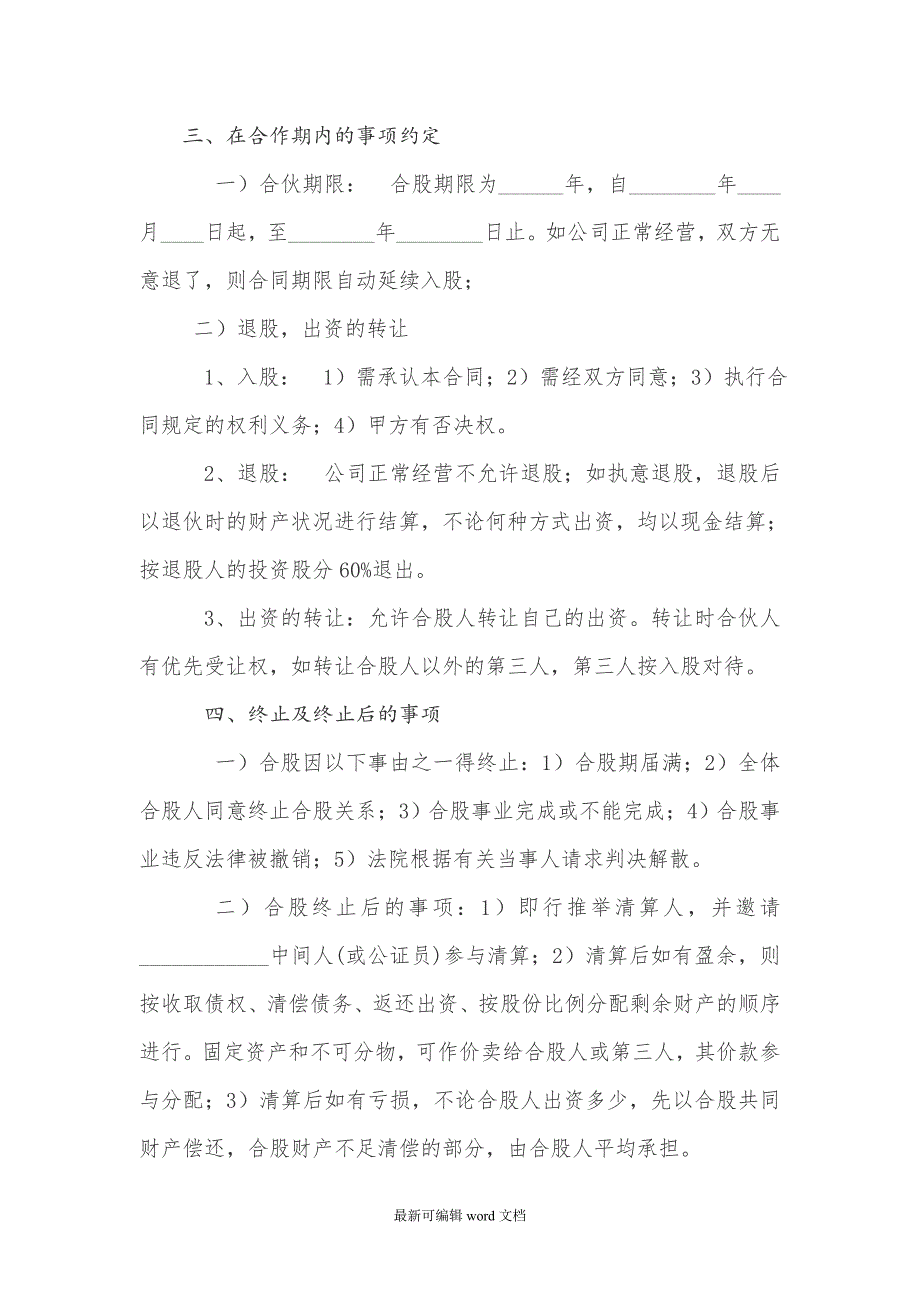 三、在合作期内的事项约定
一）合伙期限： 合股期限为______年，自________年____
月____日起，至________年________日止。如公司正常经营，双方无
意退了，则合同期限自动延续入股；
二）退股，出资的转让
1、入股： 1）需承认本合同；2）需经双方同意；3）执行合
同规定的权利义务；4）甲方有否决权。
2、退股： 公司正常经营不允许退股；如执意退股，退股后
以退伙时的财产状况进行结算，不论何种方式出资，均以现金结算；
按退股人的投资股分60%退出。
3、出资的转让：允许合股人转让自己的出资。转让时合伙人
有优先受让权，如转让合股人以外的第三人，第三人按入股对待。
四、终止及终止后的事项
一）合股因以下事由之一得终止：1）合股期届满；2）全体
合股人同意终止合股关系；3）合股事业完成或不能完成；4）合股事
业违反法律被撤销；5）法院根据有关当事人请求判决解散。
二）合股终止后的事项：1）即行推举清算人，并邀请
____________中间人(或公证员)参与清算；2）清算后如有盈余，则
按收取债权、清偿债务、返还出资、按股份比例分配剩余财产的顺序
进行。固定资产和不可分物，可作价卖给合股人或第三人，其价款参
与分配；3）清算后如有亏损，不论合股人出资多少，先以合股共同
财产偿还，合股财产不足清偿的部分，由合股人平均承担。
最新可编辑word文档